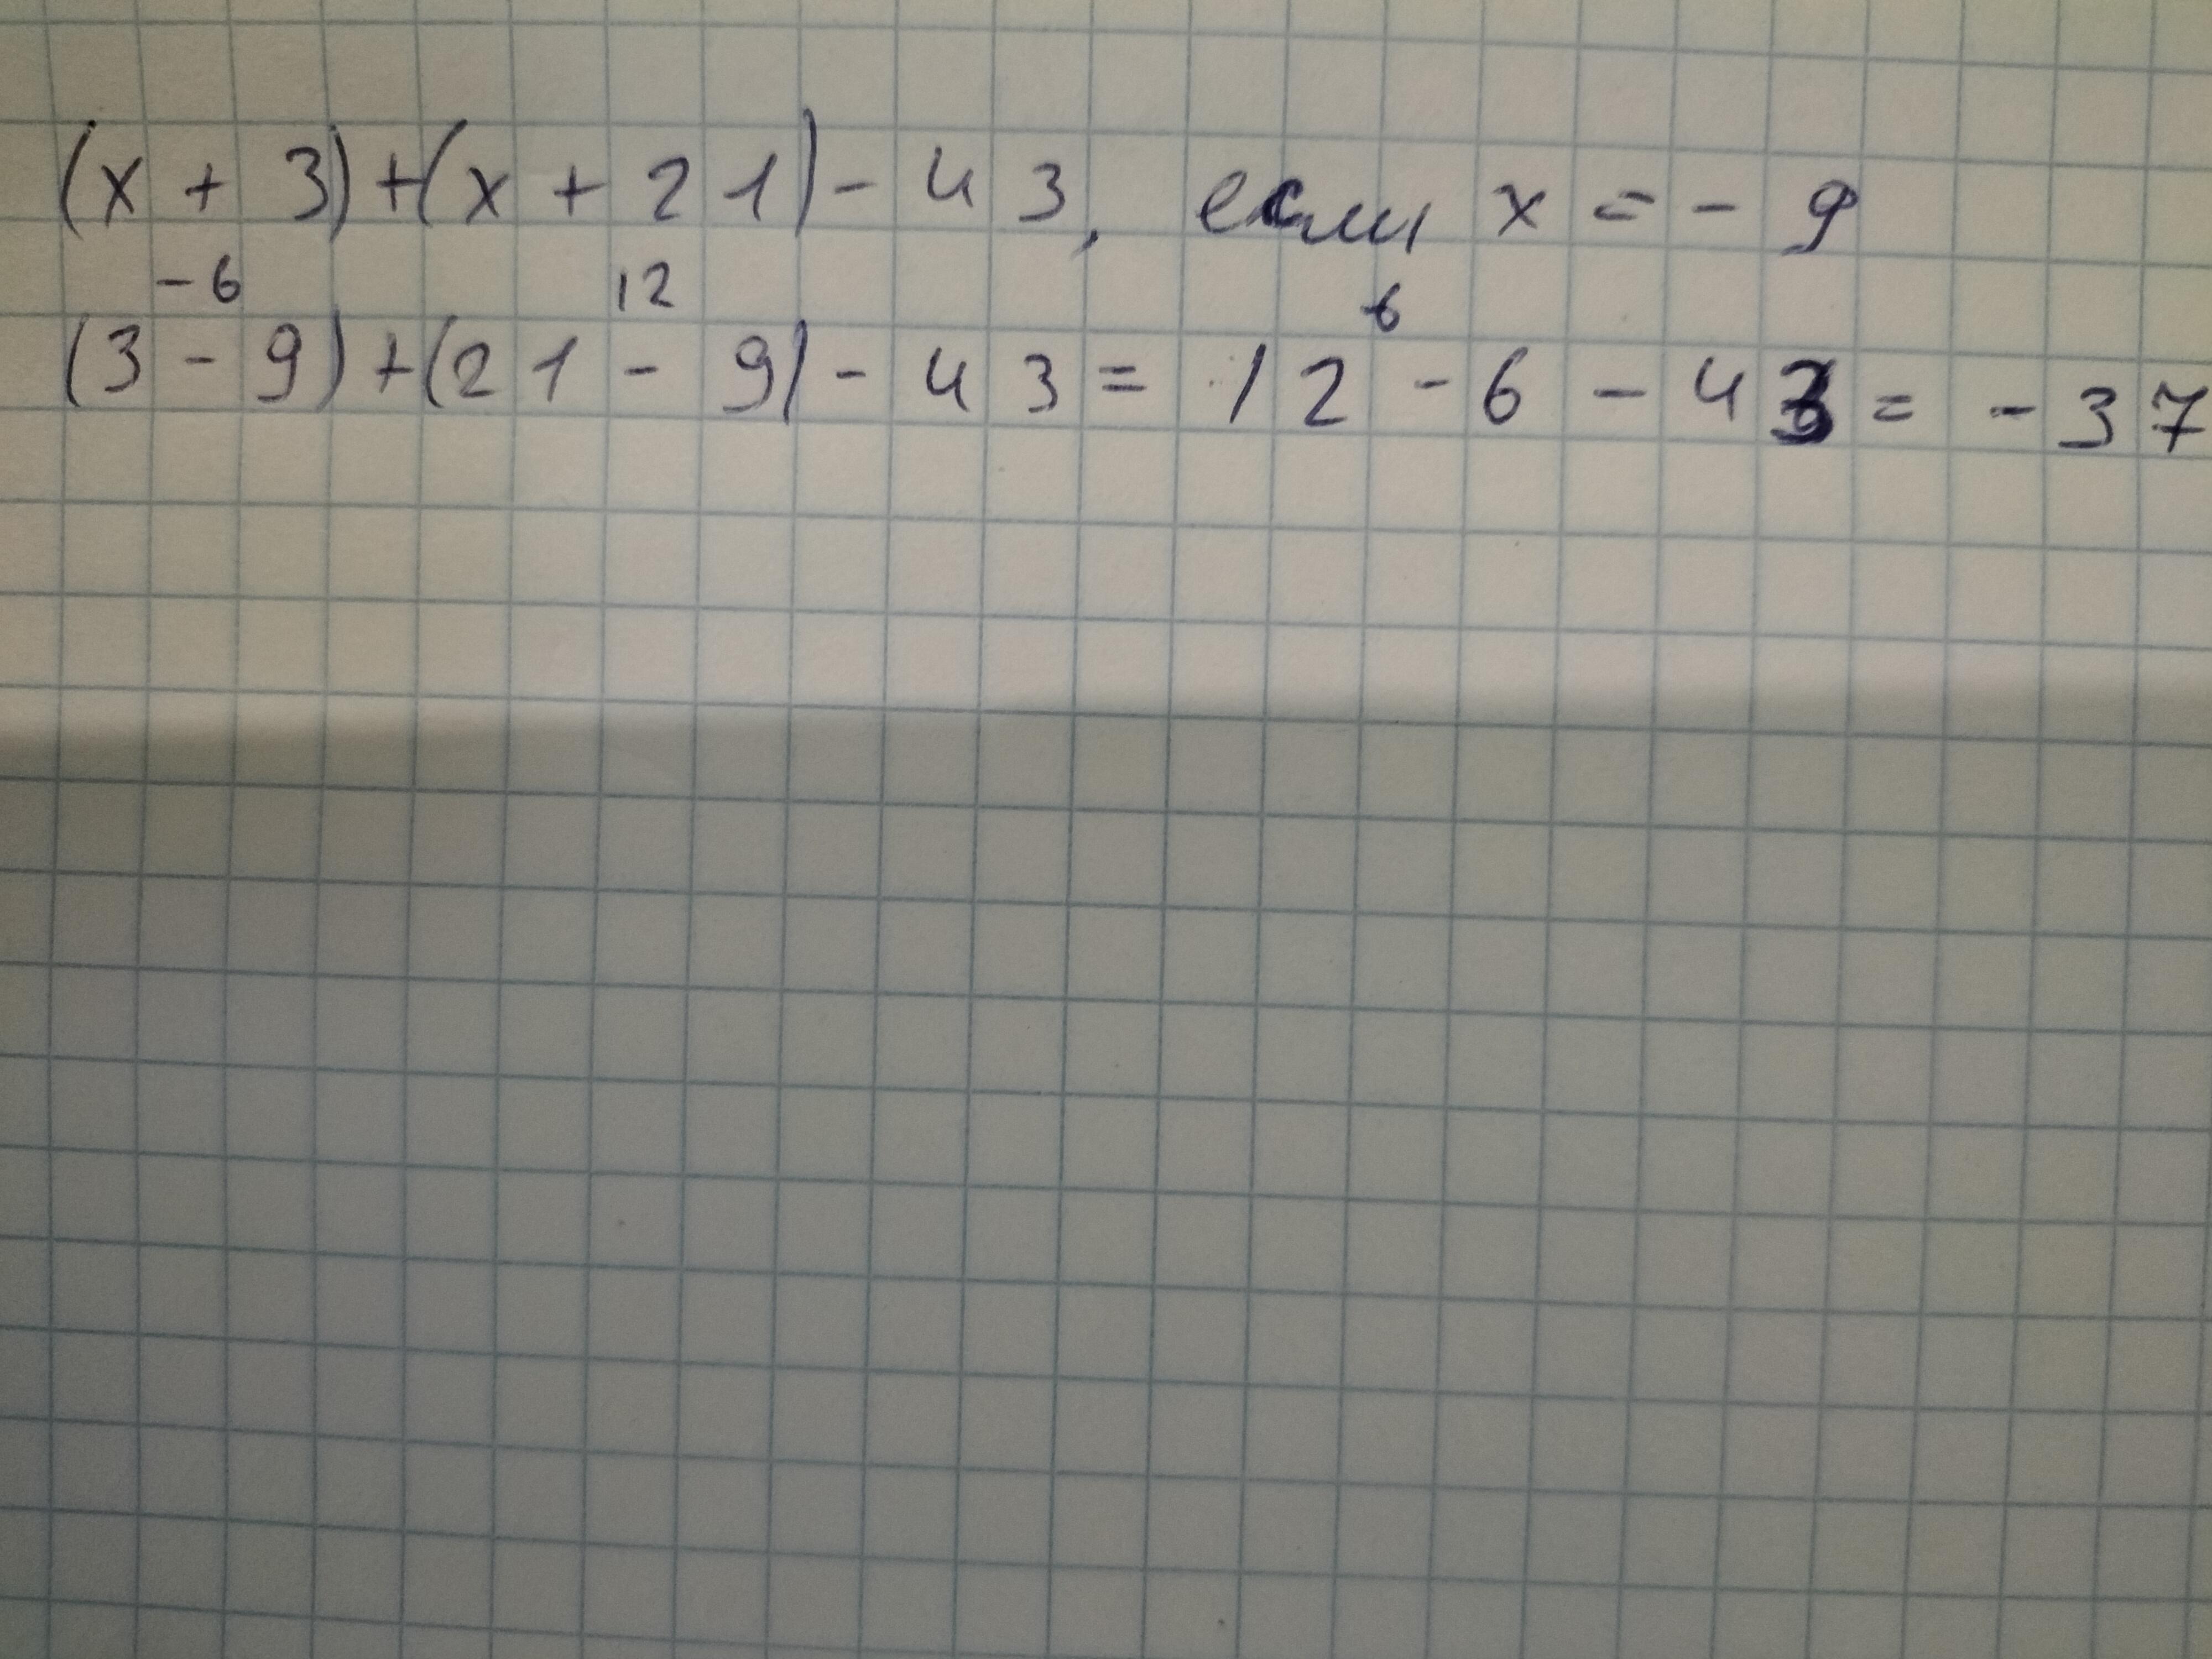 (x + 3) + (x + 21) - 43, если x = - 9
-6 12 6
(3 - 9) + (21 - 9) - 43 = 12 - 6 - 43 = - 37